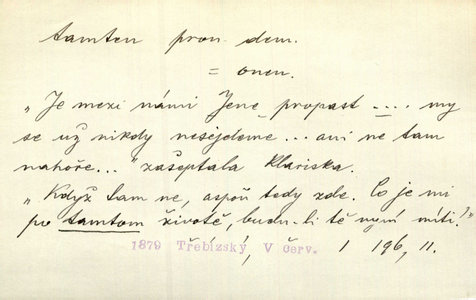 tamten pron. dem.
= onen.
„Je mezi námi Jene propast .... my
se už nikdy nesejdeme... ani ne tam
nahoře..." zašeptala Klariska.
„Když tam ne, aspoň tedy zde. Co je mi
po tamtom životě, budu-li tě nyní míti?"
1879 Třebízský V červ. 1 196, 11.